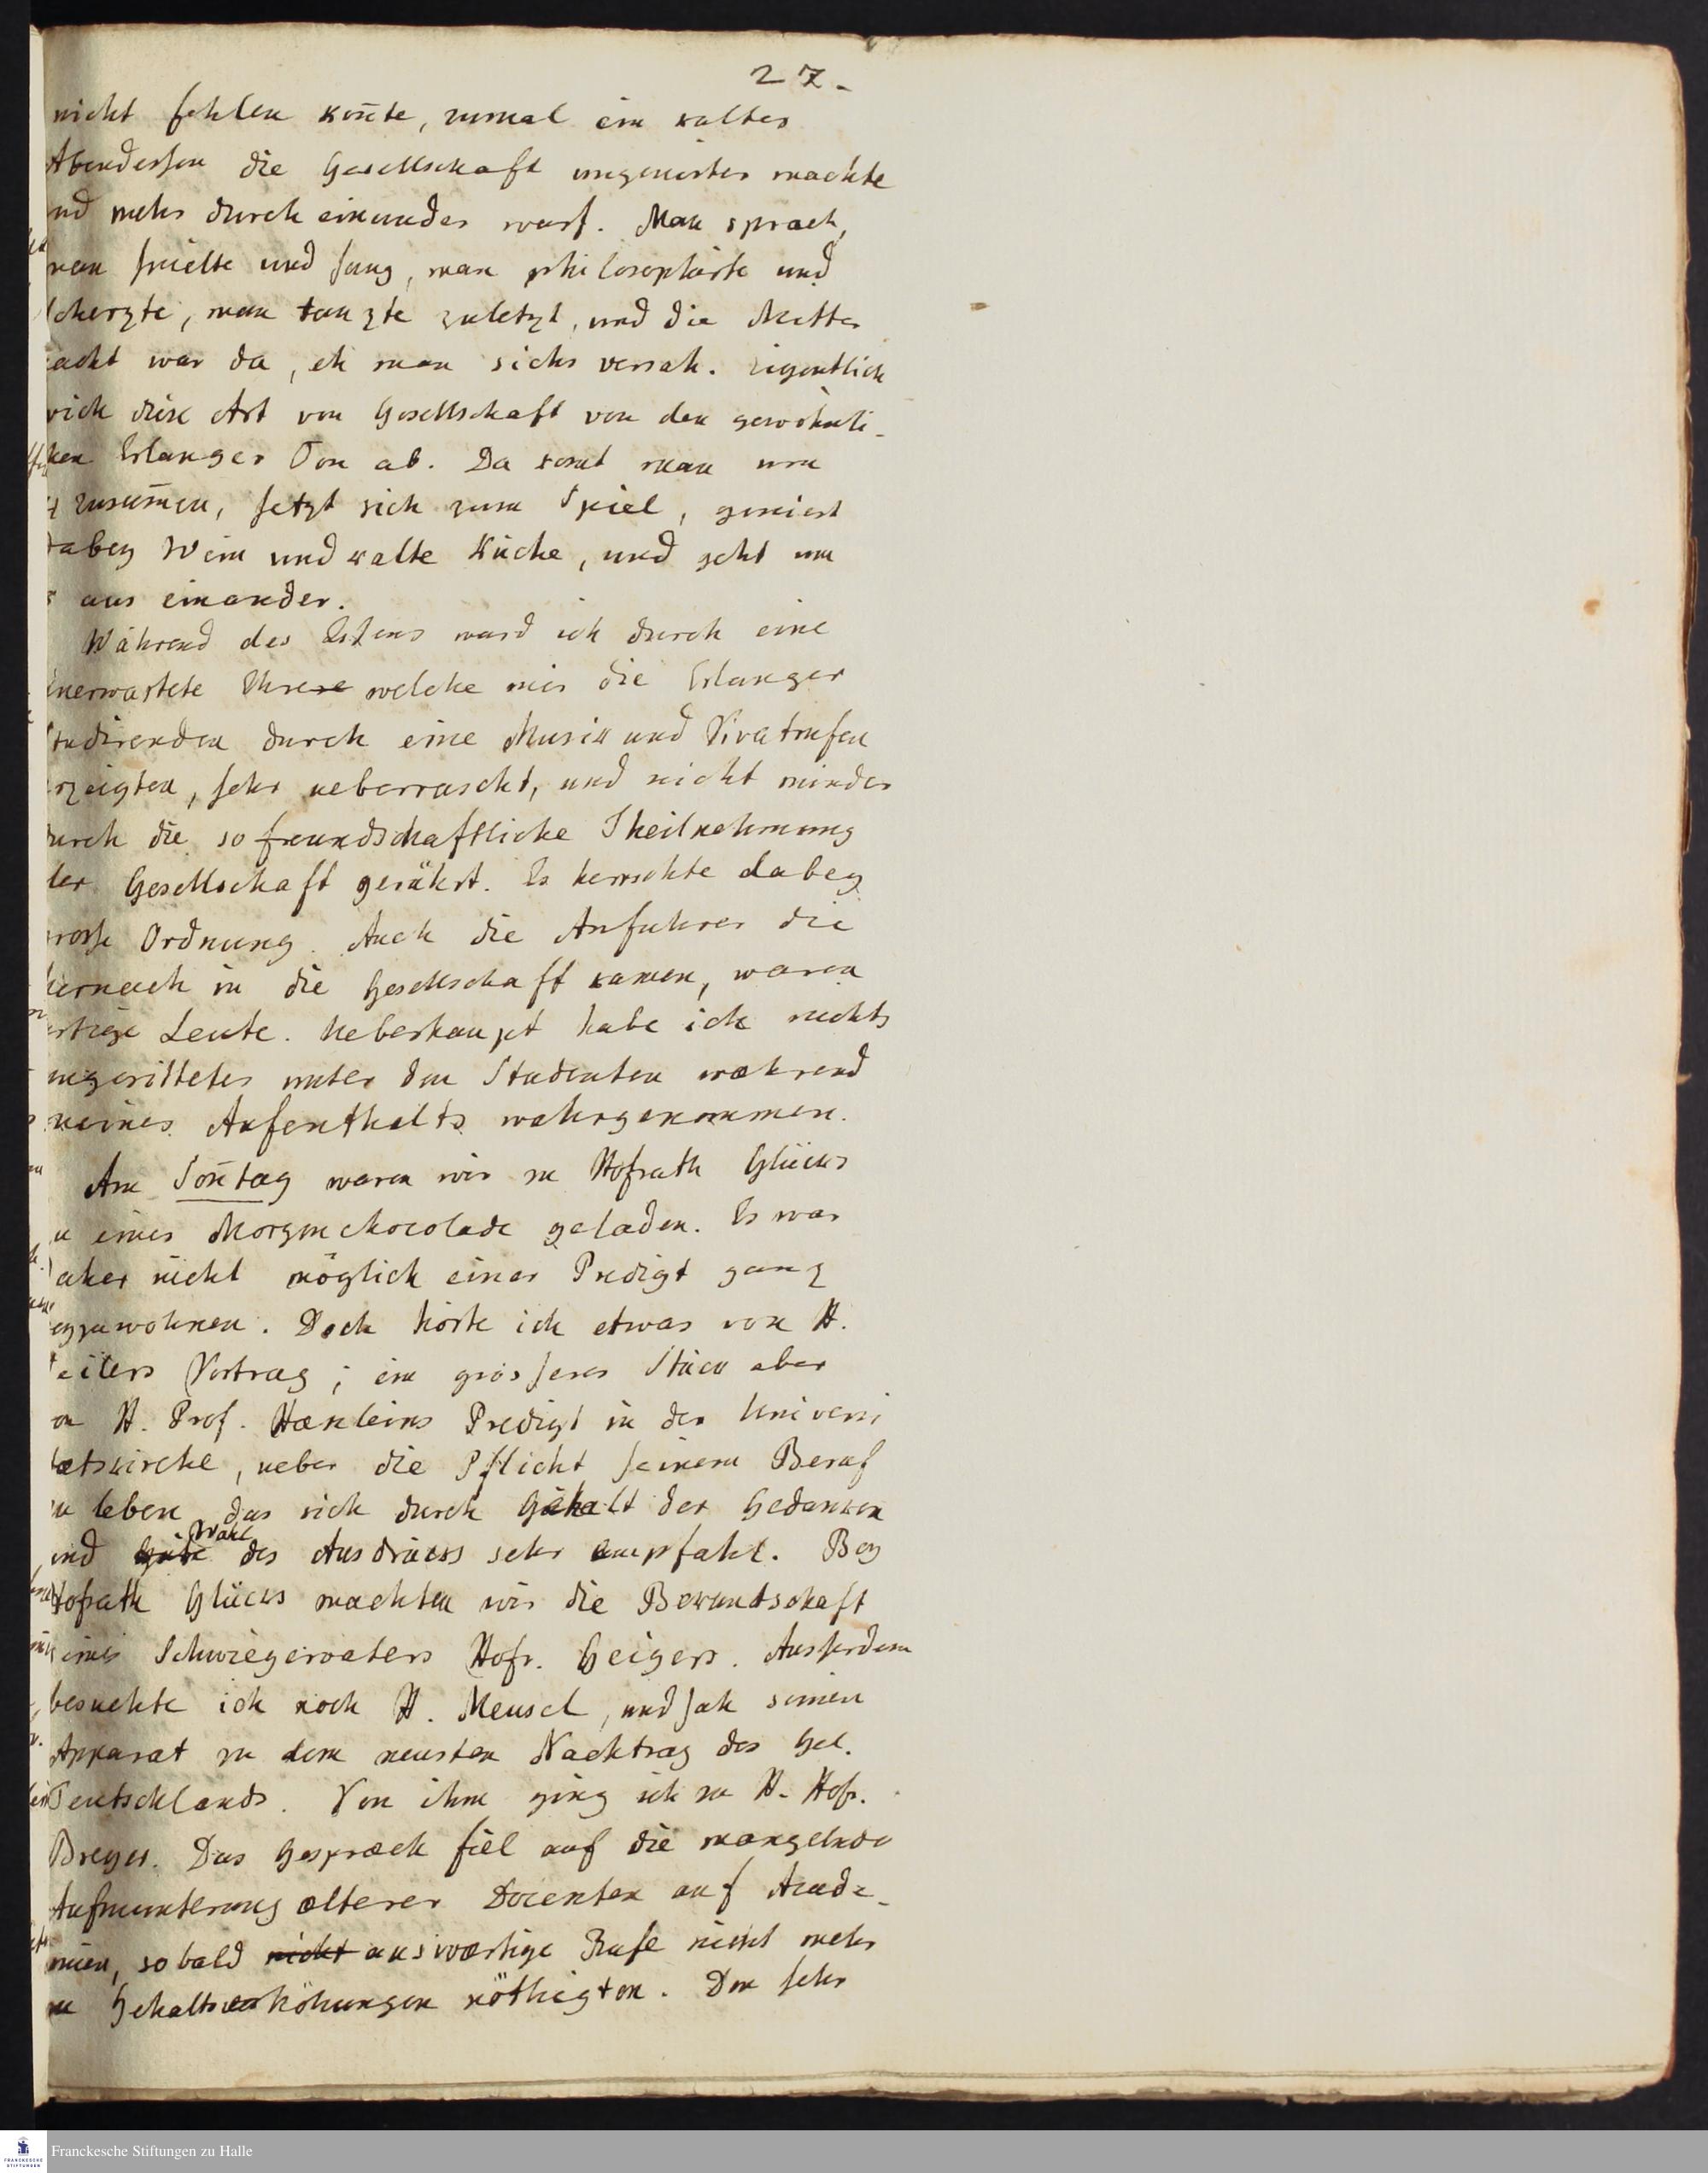 27.
nicht fehlen kon̄te, zumal ein kaltes
Abendessen die Gesellschaft ungenirter machte
nd mehr durch einander warf. Man sprach,
man spielte und sang, man philosophirte und
scherzte, man tanzte zuletzt, und die Mitter
acht war da, eh man sichs versah. Eigentlich
wich diese Art von Gesellschaft von den gewöhnli-
hen Erlanger Ton ab. Da komt man um
4 zusam̄en, setzt sich zum Spiel, geniest
dabey Wein und kalte Küche, und geht um
8 aus einander.
Während des Essens ward ich durch eine
unerwartete Ehre welche mir die Erlanger
Studirenden durch eine Musik und Vivatrufen
erzeigten, sehr ueberrascht, und nicht minder
durch die so freundschaftliche Theilnehmung
der Gesellschaft gerührt. Es herrschte dabey
grosse Ordnung. Auch die Anfuhrer die
hernach in die Gesellschaft kamen, waren
artige Leute. Ueberhaupt habe ich nichts
ungesittetes unter den Studenten während
meines Aufenthalts wahrgenommen.
Am Son̄tag waren wir zu Hofrath Glücks
zu einer Morgenchocolade geladen. Es war
daher nicht möglich einer Predigt ganz
beyzuwohnen. Doch hörte ich etwas von H.
Seilers Vortrag; ein grösseres Stück aber
von H. Prof. Hænleins Predigt in der Universi
tætskirche, ueber die Pflicht seinem Beruf
zu leben, das sich durch Gehalt der Gedanken
und Wahl
des Ausdrucks sehr empfahl. Bey
Hofrath Glücks machten wir die Bekantschaft
seines Schwiegervaters Hofr. Geigers. Ausserdem
besuchte ich noch H. Meusel, und sah seinen
Apparat zu dem neusten Nachtrag des Gel.
Teutschlands. Von ihm ging ich zu H. Hofr.
Breyer. Das Gespræch fiel auf die mangelnde
Aufmunterung ælterer Docenten auf Acade-
mien, sobald nicht auswærtige Rufe nicht mehr
zu Gehaltserhöhungen nöthigten. Den sehr
Franckesche Stiftungen zu Halle
FRANCKESCHE STIFTUNGEN